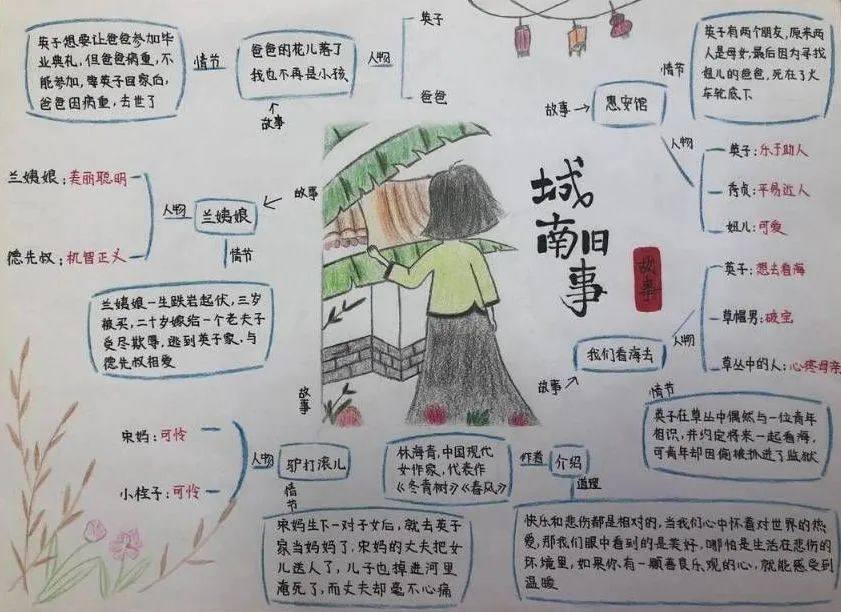 英子想要让爸爸参加毕
业典礼,但爸爸病重,不
能参加,等英子回家后,
爸爸因病重,去世了
情节
爸爸的花儿落了
我也不再是小孩
人物
英子
爸爸
故事
英子有两个朋友,原来两
人是母女,最后因为寻找
妞儿的爸爸,死在了火
车轮底下
情节
故事
惠安馆
人物
英子:乐于助人
秀贞:平易近人
妞儿:可爱
兰姨娘:美丽聪明
德先叔:机智正义
人物
兰姨娘
故事
情节
兰姨娘一生跌宕起伏,三岁
被买,二十岁嫁给一个老夫子
受尽欺辱,逃到英子家,与
德先叔相爱
城
南旧
事
故事
英子:想去看海
草帽男:破宝
草丛中的人:心疼母亲
人物
我们看海去
故事
情节
英子在草丛中偶然与一位青年
相识,并约定将来一起看海,
可青年却因偷被抓进了监狱
故事
宋妈:可怜
小栓子:可怜
人物
驴打滚儿
情节
宋妈生下一对子女后,就去英子
家当妈妈了,宋妈的丈夫把女
儿送人了,儿子也掉进河里
淹死了,而丈夫却毫不心痛
林海青,中国现代
女作家,代表作
《冬青树》《春风》
作者
介绍
道理
快乐和悲伤都是相对的,当我们心中怀着对世界的热
爱,那我们眼中看到的是美好,哪怕是生活在悲伤的
环境里,如果你有一颗善良乐观的心,就能感受到
温暖